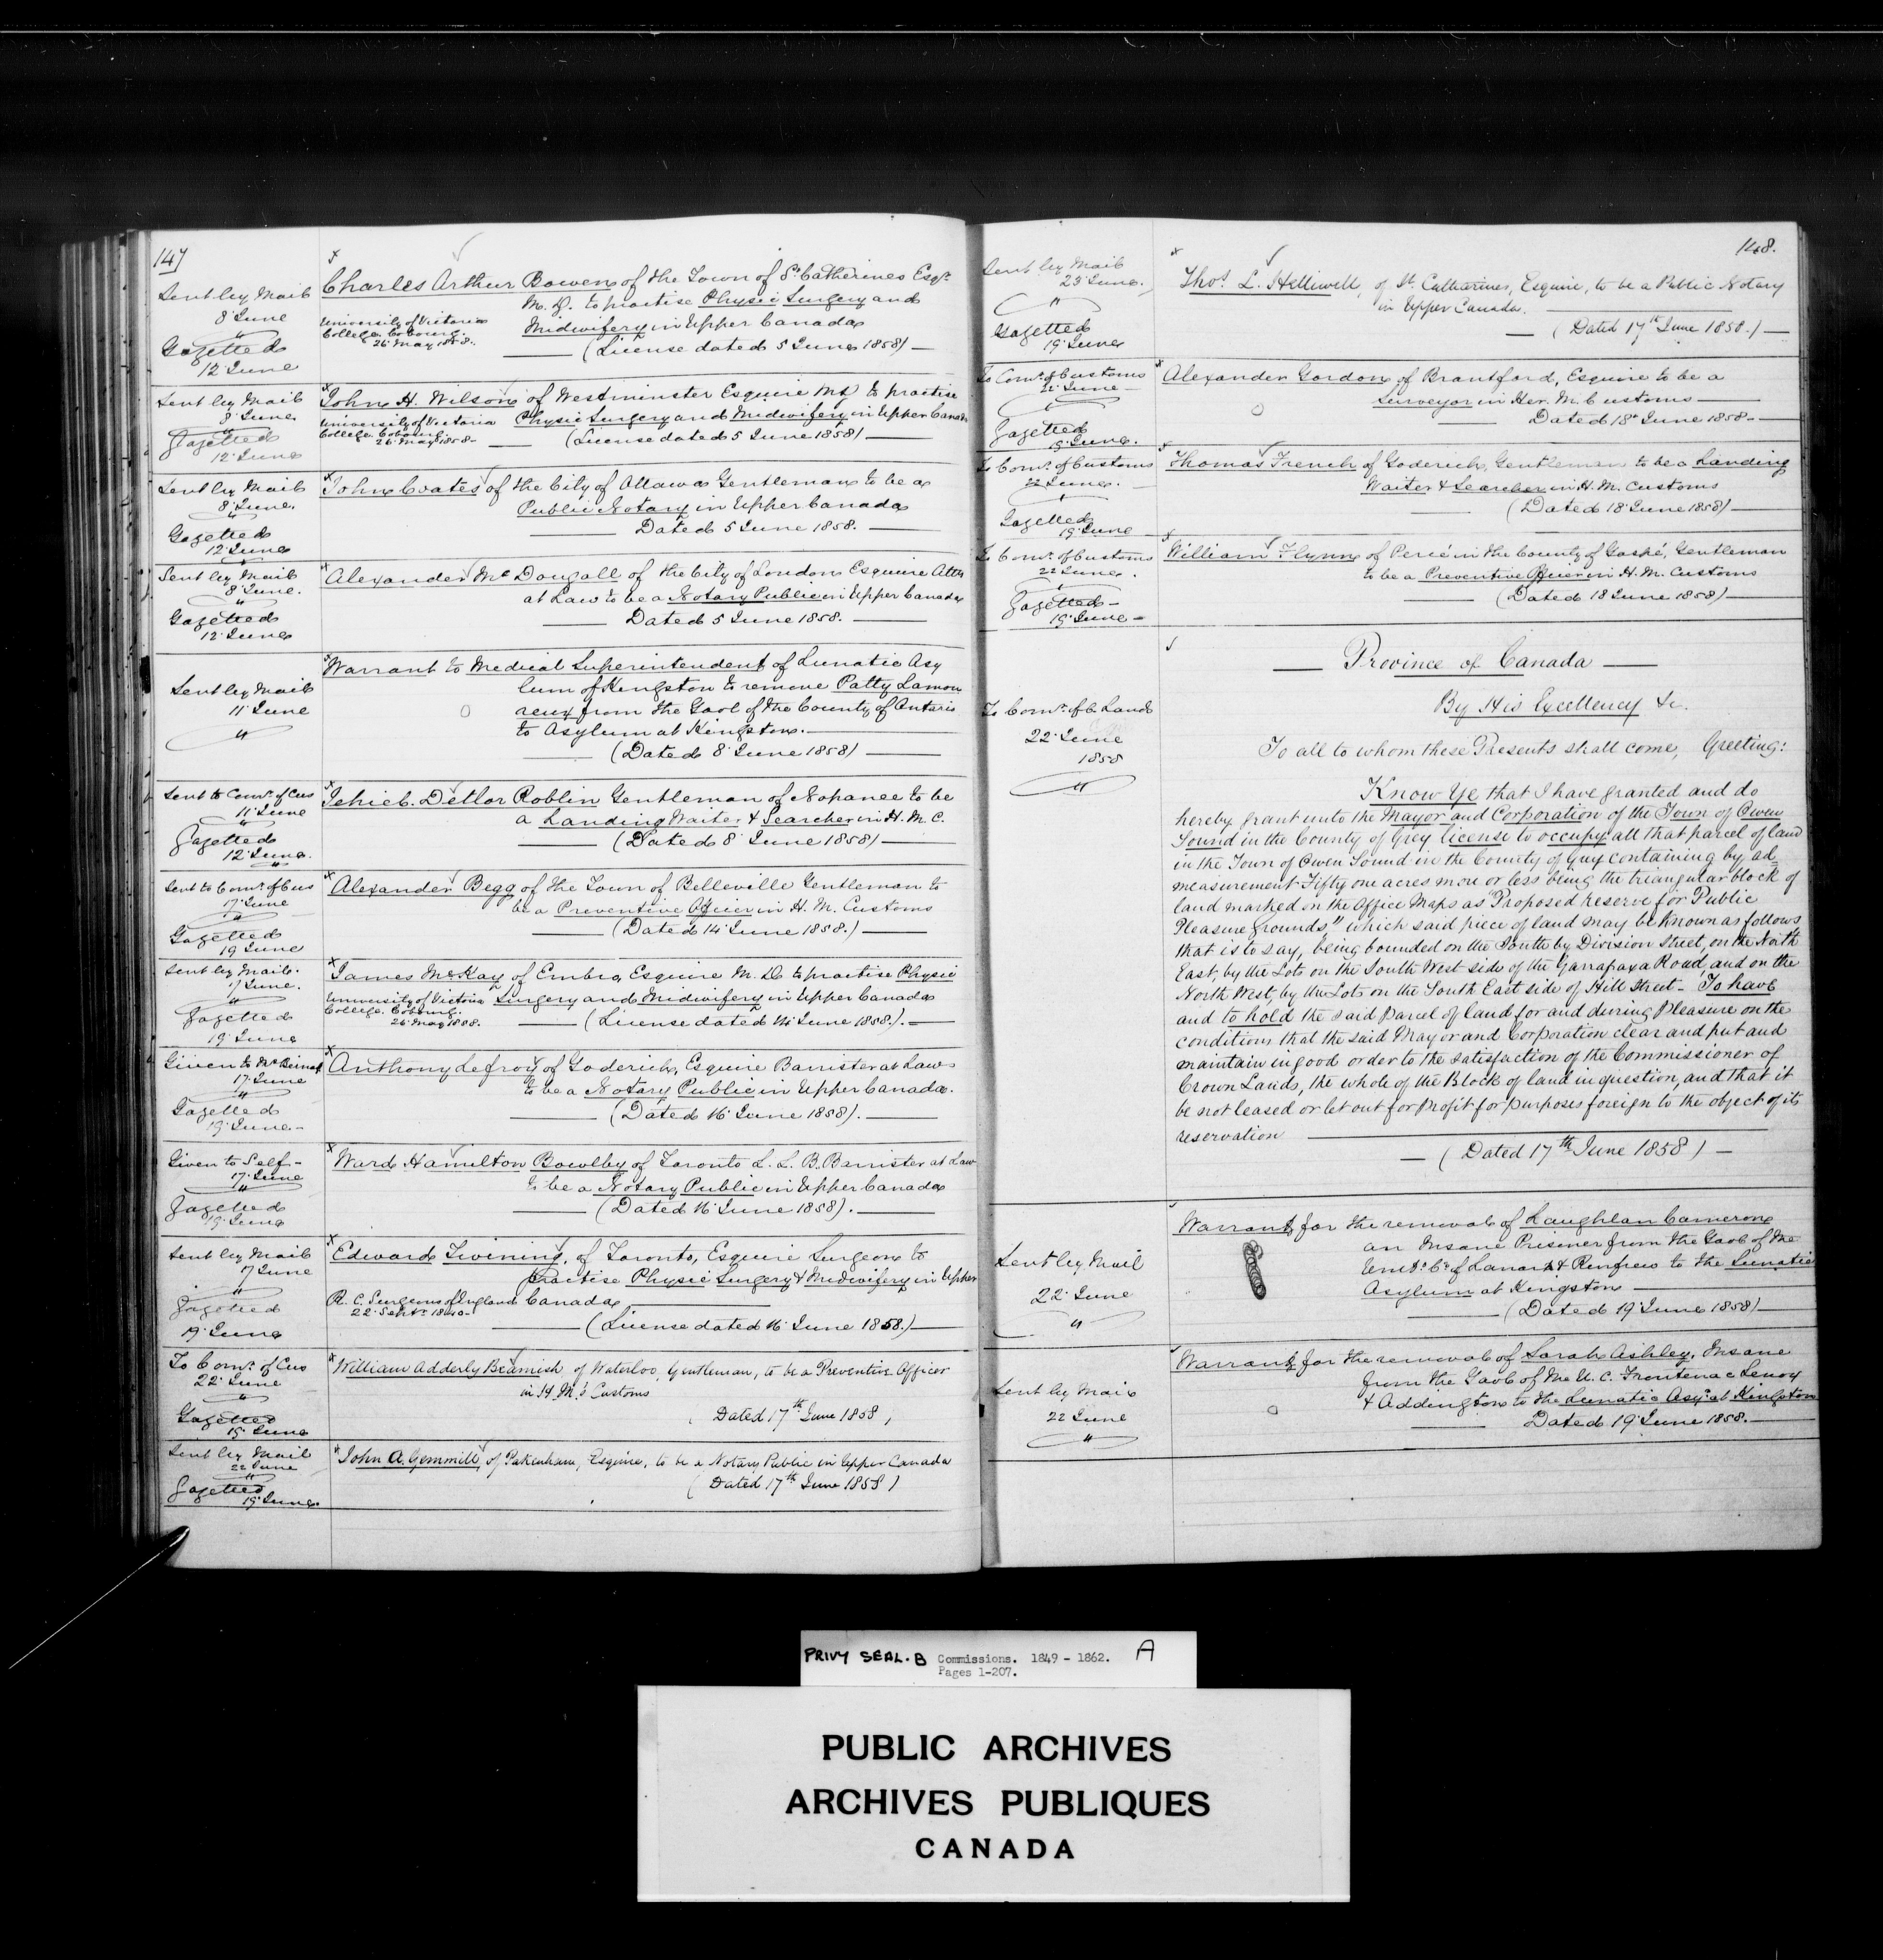 147
Sent by Mail
8 June
"
Gazetted
12 June
Charles Arthur Bowen of the Town of St Catherines Esqr
M. D. to practise Physic Surgery and
University of Victoria
College. Cobourg.
26 May 1858.
Midwifery in Upper Canada
(License dated 5 June 1858)
Sent by Mail
8 June
"
Gazetted
12 June
John H. Wilson of Westminster Esquire MD to practise
University of Victoria
College. Cobourg.
26 May 1858
Physic Surgery and Midwifery in Upper Canada
(License dated 5 June 1858)
Sent by Mail
8 June.
"
Gazetted
12 June
John Coates of the City of Ottawa Gentleman to be a
Public Notary in Upper Canada
Dated 5 June 1858.
Sent by Mail
8 June.
"
Gazetted
12 June
Alexander Mc Dougall of the City of London Esquire Atty
at Law to be a Notary Public in Upper Canada
Dated 5 June 1858.
Sent by Mail
11 June
"
Warrant to Medical Superintendent of Lunatic Asy
lum of Kingston to remove Patty Lamou
reux from the Gaol of the County of Ontario
to Asylum at Kingston.
(Dated 8 June 1858)
Sent to Comr. of Cus
11 June
"
Gazetted
12 June.
"
Jehiel. Detlor Roblin Gentleman of Napanee to be
a Landing Waiter & Searcher in H. M. C.
(Dated 8 June 1858)
Sent to Comr. of Cus
17 June
"
Gazetted
19 June
Alexander Begg of the Town of Belleville Gentleman to
be a Preventive Officer in H. M. Customs
(Dated 14 June 1858.)
Sent by Mail.
17 June.
"
Gazetted
19 June
James McKay of Embro, Esquire M. D. to practise Physic
University of Victoria
College. Cobourg.
26 May 1858.
Surgery and Midwifery in Upper Canada
(License dated 14 June 1858.)
Given to Mr
17 June
"
Gazetted
19 June
Anthony Lefroy of Goderich, Esquire Barrister at Law
to be a Notary Public in Upper Canada.
(Dated 16 June 1858).
Given to Self
17 June
"
Gazetted
19 June
Ward Hamilton Bowlby of Toronto L. L. B. Barrister at Law
to be a Notary Public in Upper Canada
(Dated 16 June 1858).
Sent by Mail
17 June
"
Gazetted
19 June
Edward Twining, of Toronto, Esquire Surgeon to
practise Physic Surgery & Midwifery in Upper
R. C. Surgeons of England
22 Septr. 1840
Canada
(License dated 16 June 1858.)
To Comr. of Cus
22 June
"
Gazetted
19 June
William Adderly Beamish of Waterloo, Gentleman, to be a Preventive Officer
in H. M.'s Customs
Dated 17th June 1858,
Sent by Mail
22 June
"
Gazetted
19 June.
John A. Gemmill, of Pakenham, Esquire, to be a Notary Public in Upper Canada
(Dated 17th June 1858)
148.
Sent by Mail
23 June.
"
Gazetted
19 June
Thos. L. Helliwell, of St. Catharines, Esquire, to be a Public Notary
in Upper Canada.
(Dated 17th June 1858.)
To Comr. of Customs
22 June
"
Gazetted
19 June.
Alexander Gordon of Brantford, Esquire to be a
Surveyor in Her. M. Customs
Dated 18 June 1858
To Comr. of Customs
22 June.
"
Gazetted
19 June
Thomas French of Goderich, Gentleman to be a Landing
Waiter & Searcher in H. M. Customs
(Dated 18 June 1858)
To Comr. of Customs
22 June.
"
Gazetted
19 June
William Flynn of Percé in the County of Gaspé, Gentleman
to be a Preventive Officer in H. M. Customs
(Dated 18 June 1858)
To Comr. of C Lands
22 June
1858
"
Province of Canada
By His Excellency &c.
To all to whom these Presents shall come, Greeting:
Know Ye that I have granted and do
hereby grant unto the Mayor and Corporation of the Town of Owen
Sound in the County of Grey license to occupy all that parcel of land
in the Town of Owen Sound in the County of Grey containing by ad=
measurement Fifty one acres more or less being the triangular block of
land marked on the Office Maps as "Proposed reserve for Public
Pleasure grounds," which said piece of land may be known as follows
that is to say, being bounded on the South by Division Street, on the North
East, by the Lots on the South West side of the Garrafaxa Road, and on the
North West, by the Lots on the South East side of Hill Street - To have
and to hold the said parcel of land for and during Pleasure on the
conditions that the said Mayor and Corporation clear and put and
maintain in good order to the satisfaction of the Commissioner of
Crown Lands, the whole of the Block of land in question, and that it
be not leased or let out for profit for purposes foreign to the object of its
reservation
(Dated 17th June 1858)
Sent by Mail
22 June
"
Warrant, for the removal of Laughlan Cameron
an Insane Prisoner from the Gaol of the
Untd. Cs. of Lanark & Renfrew to the Lunatic
Asylum at Kingston
(Dated 19 June 1858)
Sent by Mail
22 June
"
Warrant for the removal of Sarah Ashley, Insane
from the Gaol of the U. C. Frontenac Lenox
& Addington to the Lunatic Asym at Kingston
Dated 19 June 1858.
PRIVY SEAL. B Commissions. 1849 - 1862. A
Pages 1-207.
PUBLIC ARCHIVES
ARCHIVES PUBLIQUES
CANADA